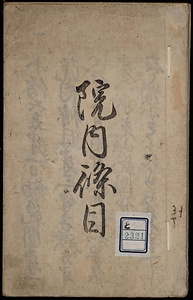 院内條目
と
2321